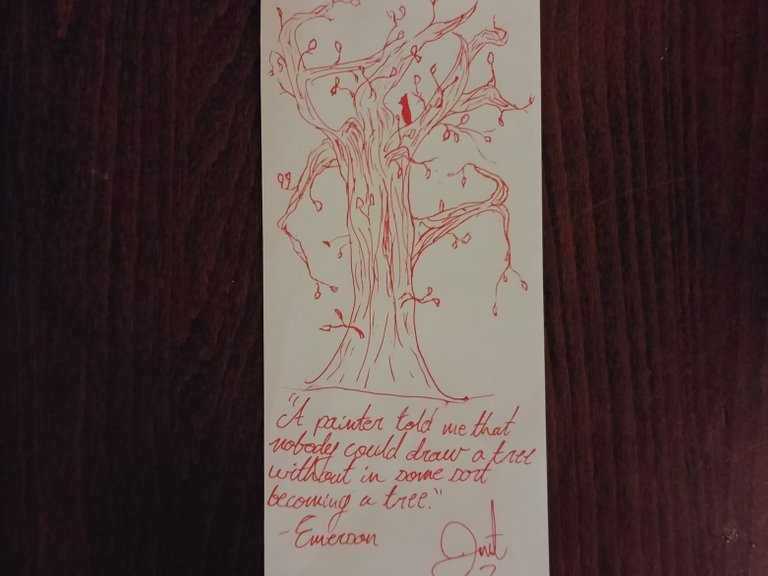 "A painter told me that
nobody could draw a tree
without in some sort
becoming a tree."
-Emerson